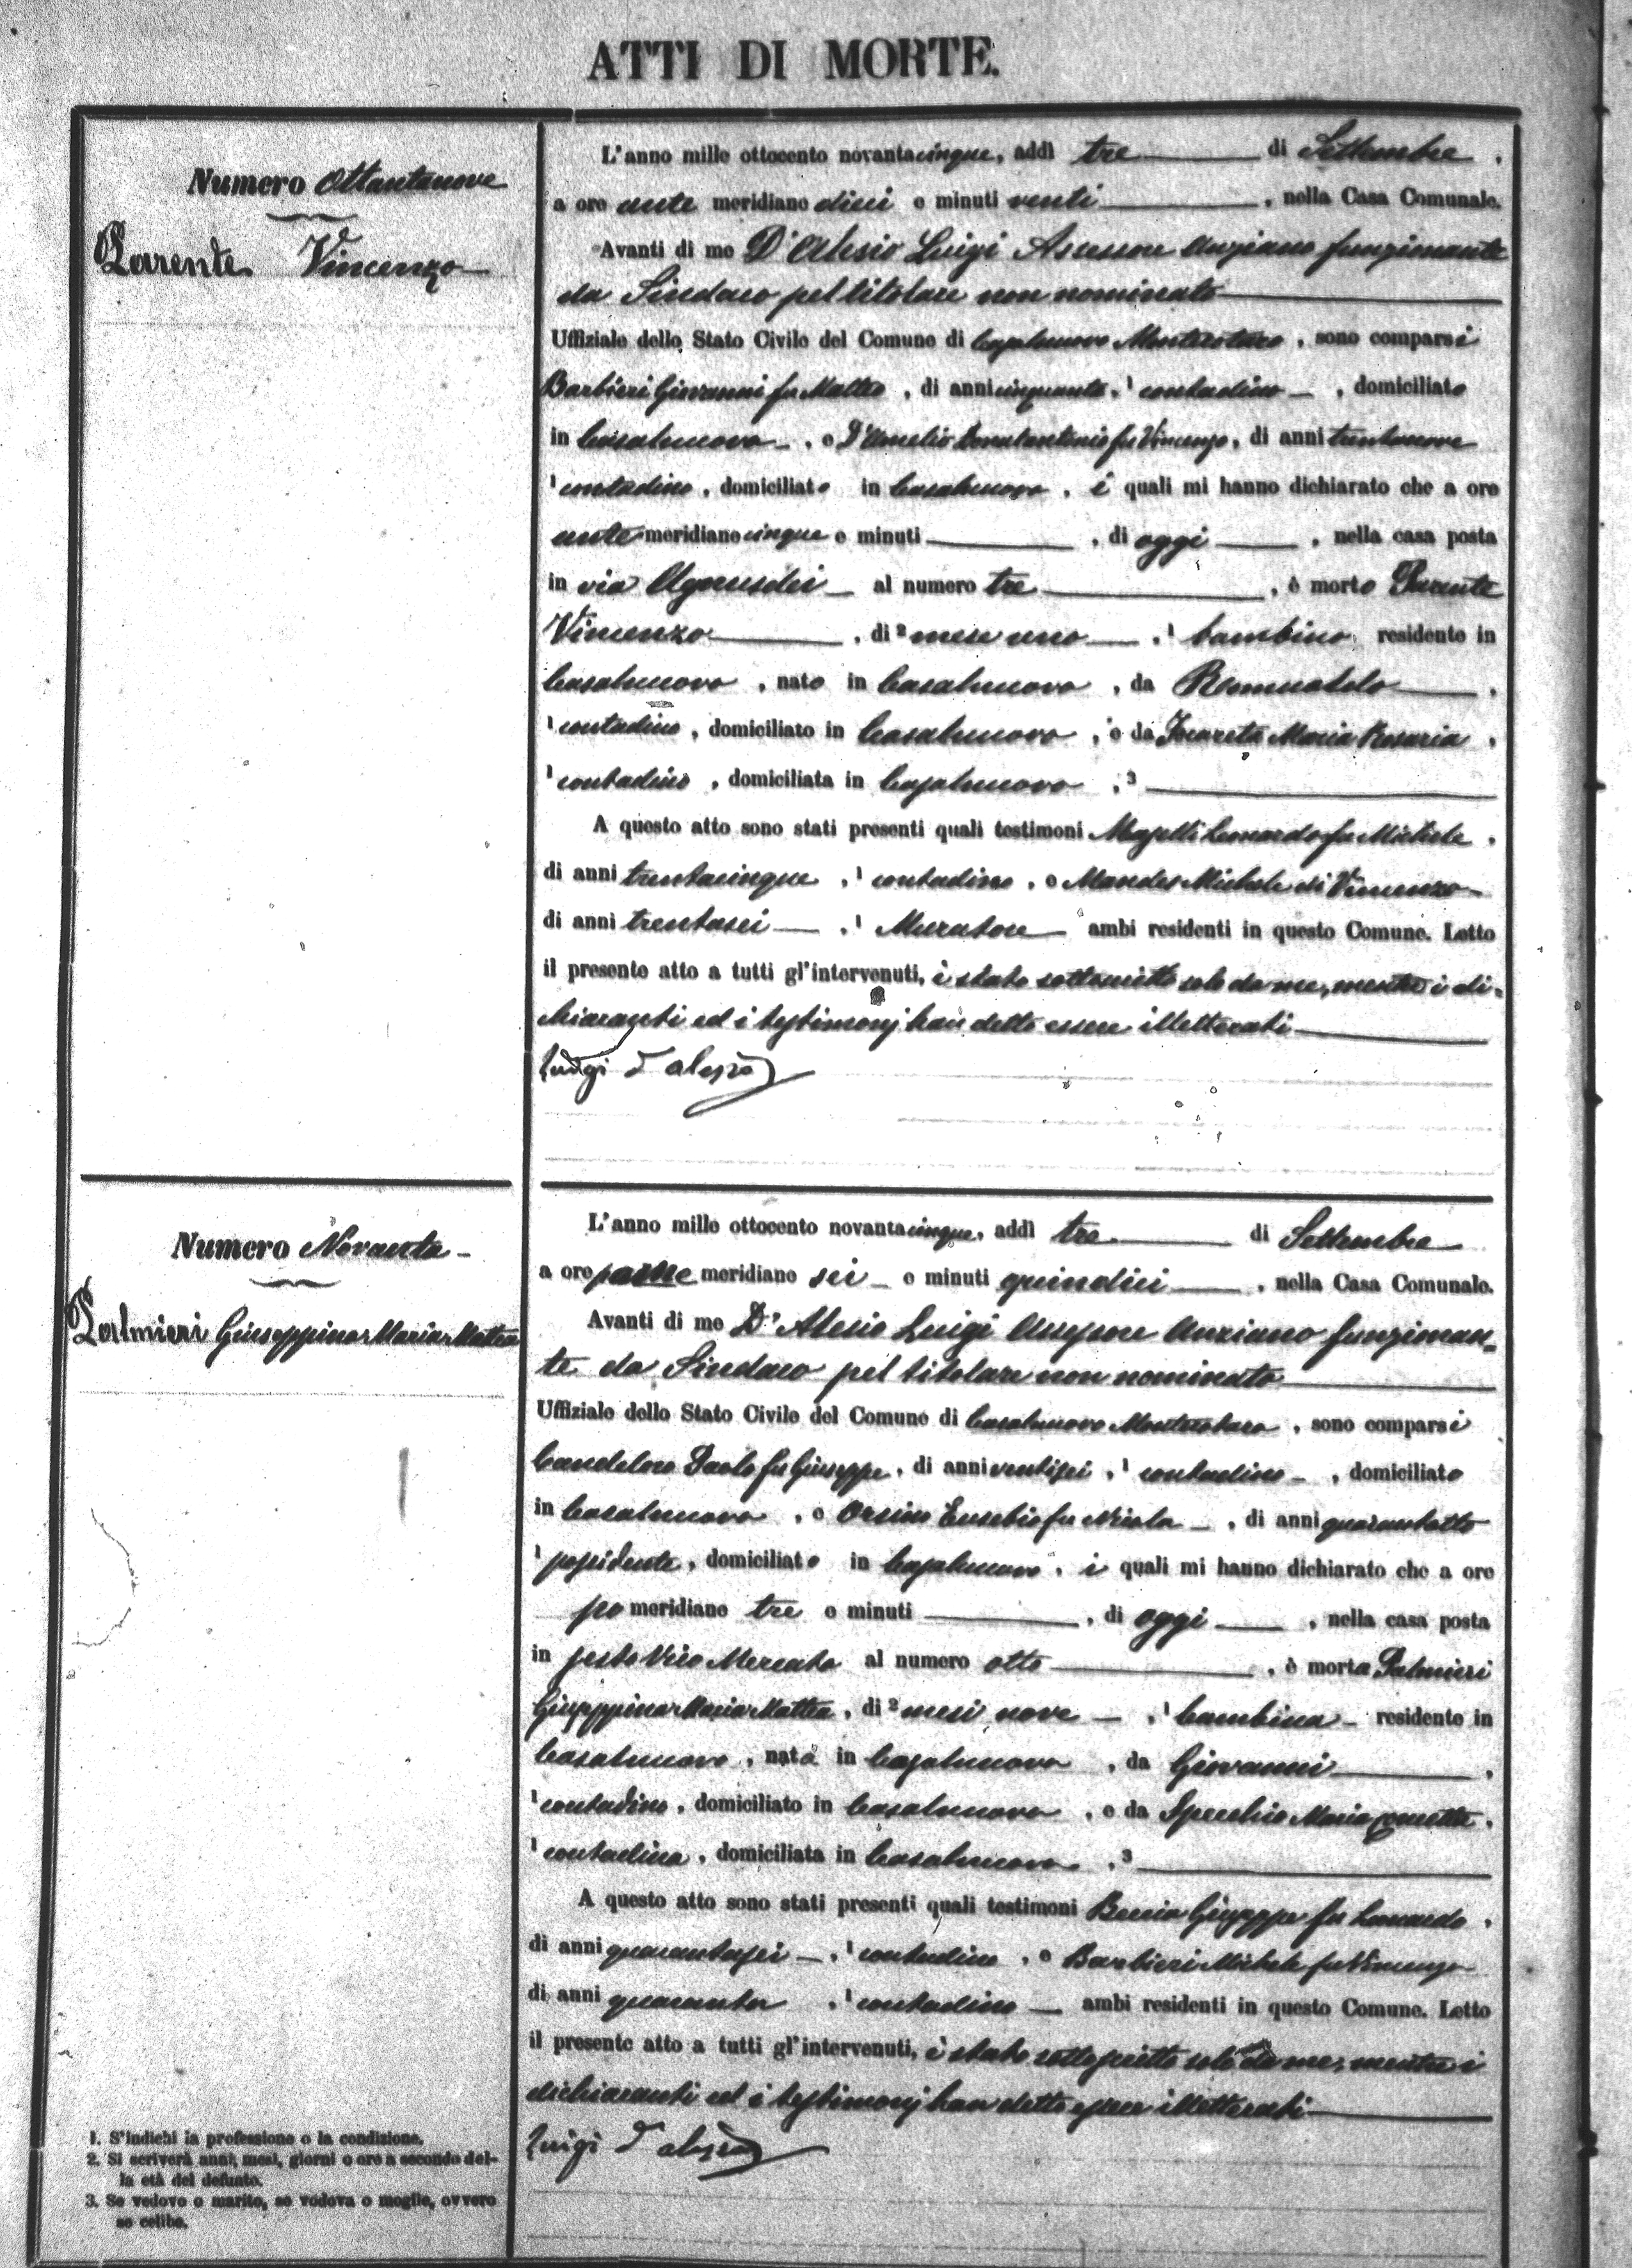 ATTI DI MORTE.
Numero Ottantanove
Parente Vincenzo
L'anno mille ottocento novantacinque, addì tre di Settembre,
a ore ante meridiane dieci e minuti venti, nella Casa Comunale.
Avanti di me D'Alesio Luigi Assessore Anziano funzionante
da Sindaco pel titolare non nominato
Uffiziale dello Stato Civile del Comune di Casalnuovo Monterotaro, sono comparsi
Barbieri Giovanni fu Matteo, di anni cinquanta, 1 contadino, domiciliato
in Casalnuovo, e D'Amelio Donatantonio fu Vincenzo, di anni trentanove
1 contadino, domiciliato in Casalnuovo, i quali mi hanno dichiarato che a ore
ante meridiane cinque e minuti, di oggi, nella casa posta
in via Agnusdei al numero tre, è morto Parente
Vincenzo, di 2 mese uno, 1 bambino residente in
Casalnuovo, nato in Casalnuovo, da Romualdo,
1 contadino, domiciliato in Casalnuovo, e da Maria Rosaria,
1 contadino, domiciliata in Casalnuovo, 3
A questo atto sono stati presenti quali testimoni Leonardo fu Michele,
di anni trentacinque, 1 contadino, e Mandes Michele di Vincenzo
di anni trentasei, 1 Muratore ambi residenti in questo Comune. Letto
il presente atto a tutti gl'intervenuti, è stato sottoscritto solo da me, mentre i di-
chiaranti ed i testimonj han detto essere illetterati
Luigi D'Alesio
Numero Novanta
Palmieri Giuseppina Maria Mattea
L'anno mille ottocento novantacinque, addì tre di Settembre
a ore pome meridiane sei e minuti quindici, nella Casa Comunale.
Avanti di me D'Alesio Luigi Assessore Anziano funzionan-
te da Sindaco pel titolare non nominato
Uffiziale dello Stato Civile del Comune di Casalnuovo Monterotaro, sono comparsi
Candeloro Paolo fu Giuseppe, di anni ventisei, 1 contadino, domiciliato
in Casalnuovo, e Orsino Eusebio fu Nicola, di anni quarantotto
1 possidente, domiciliato in Casalnuovo, i quali mi hanno dichiarato che a ore
po meridiane tre e minuti, di oggi, nella casa posta
in sesto Vico Mercato al numero otto, è morta Palmieri
Giuseppina Maria Mattea, di 2 mesi nove, 1 bambina residente in
Casalnuovo, nata in Casalnuovo, da Giovanni,
1 contadino, domiciliato in Casalnuovo, e da Specchio Maria Concetta,
1 contadina, domiciliata in Casalnuovo, 3
A questo atto sono stati presenti quali testimoni Beccia Giuseppe fu Leonardo,
di anni quarantasei, 1 contadino, e Barbieri Michele fu Vincenzo
di anni quaranta, 1 contadino ambi residenti in questo Comune. Letto
il presente atto a tutti gl'intervenuti, è stato sottoscritto solo da me, mentre i
dichiaranti ed i testimonj han detto esser illetterati
Luigi D'Alesio
1. S'indichi la professione o la condizione.
2. Si scriverà anni, mesi, giorni o ore a secondo del-
la età del defunto.
3. Se vedovo o marito, se vedova o moglie, ovvero
se celibe.